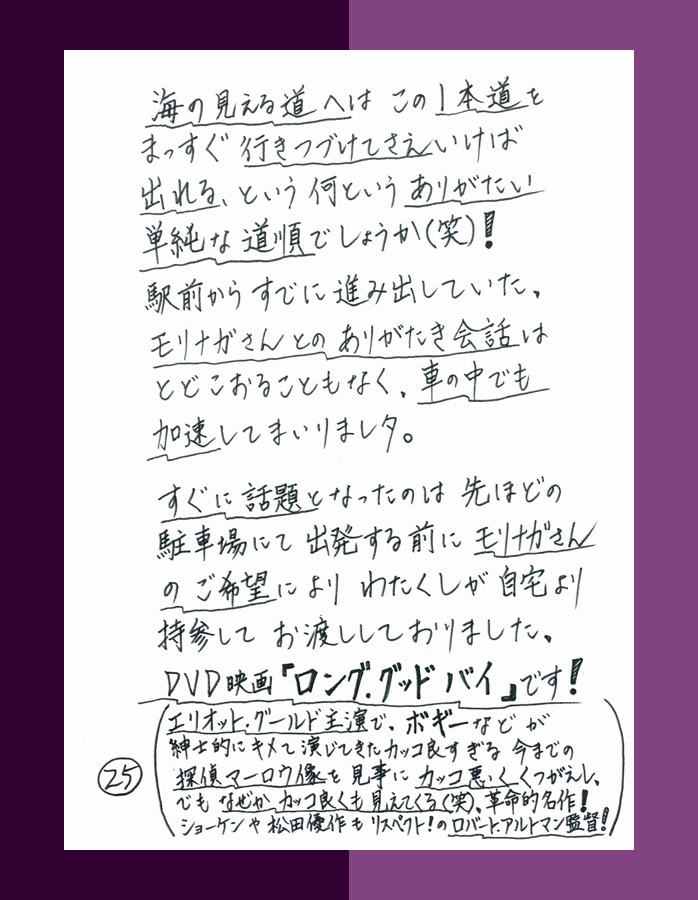 海の見える道へは この1本道を
まっすぐ 行きつづけてさえいけば
出れる、という 何という ありがたい
単純な 道順でしょうか(笑)!
駅前から すでに 進み出していた、
モリナガさん との ありがたき会話は
とどこおることもなく、車の中でも
加速してまいりましタ。
すぐに 話題となったのは 先ほどの
駐車場にて 出発する前に モリナガさん
の ご希望により わたくしが 自宅より
持参して お渡ししておりました、
DVD映画『ロング.グッド バイ』です!
(エリオット.グールド主演で、ボギーなどが
紳士的に キメて 演じてきたカッコ良すぎる 今までの
探偵マーロウ像を 見事に カッコ悪いくくつがえし、
でも なぜか カッコ良くも 見えてくる(笑)、革命的名作!
ショーケンや 松田優作も リスペクト!の ロバート.アルトマン監督!)
25